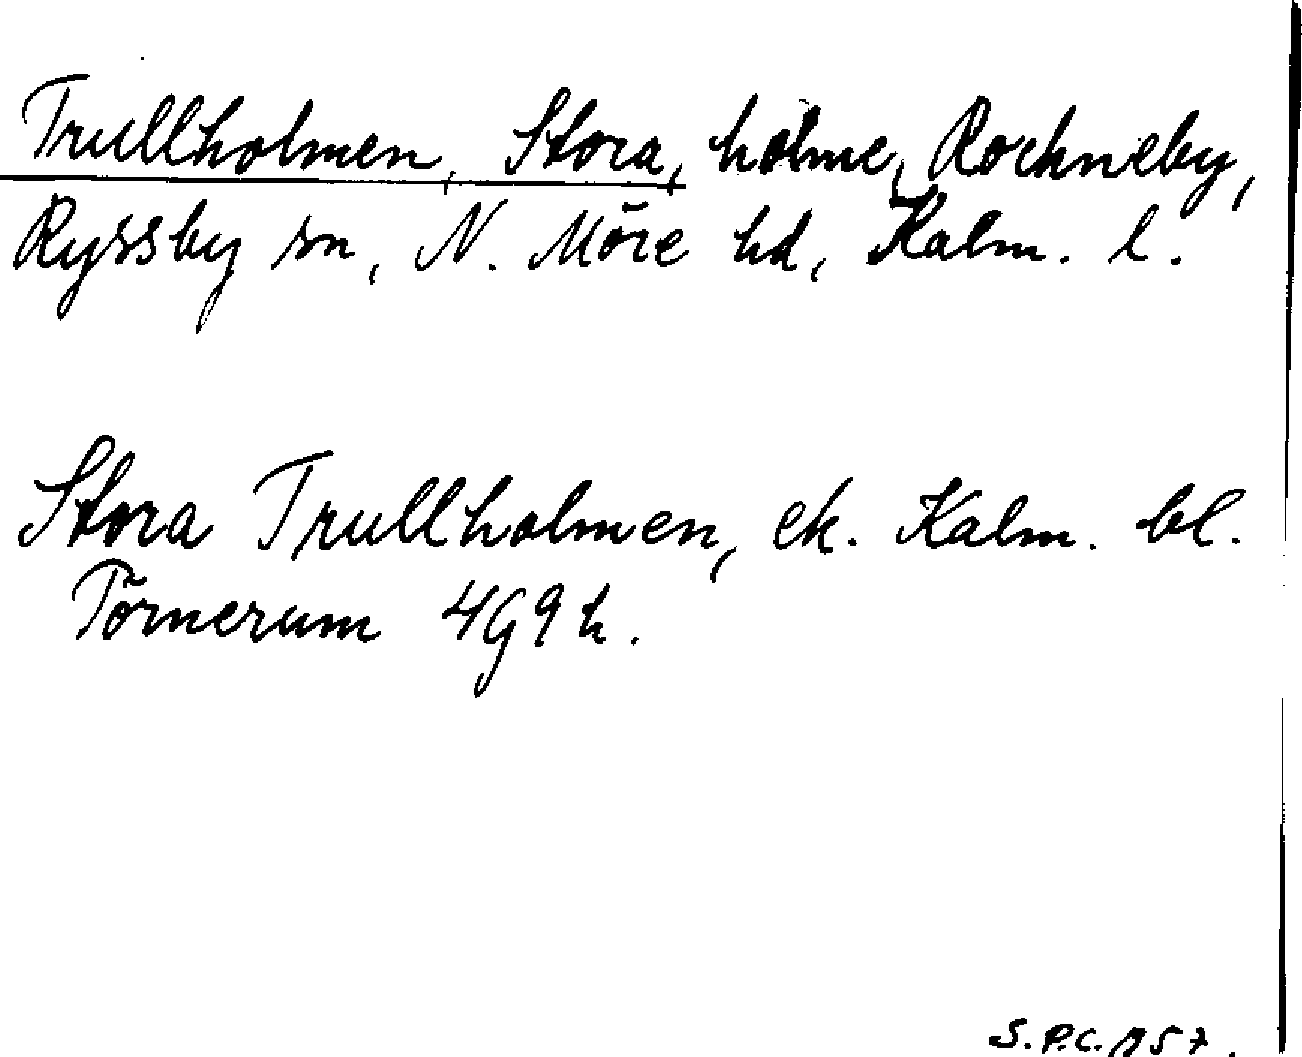 Trullholmen, Stora, holme, Rockneby,
Ryssby sn, N. Möre hd, Kalm. l.
Stora Trullholmen, ek. Kalm. bl.
Törnerum 4G9h.
S.P.C. 1957.